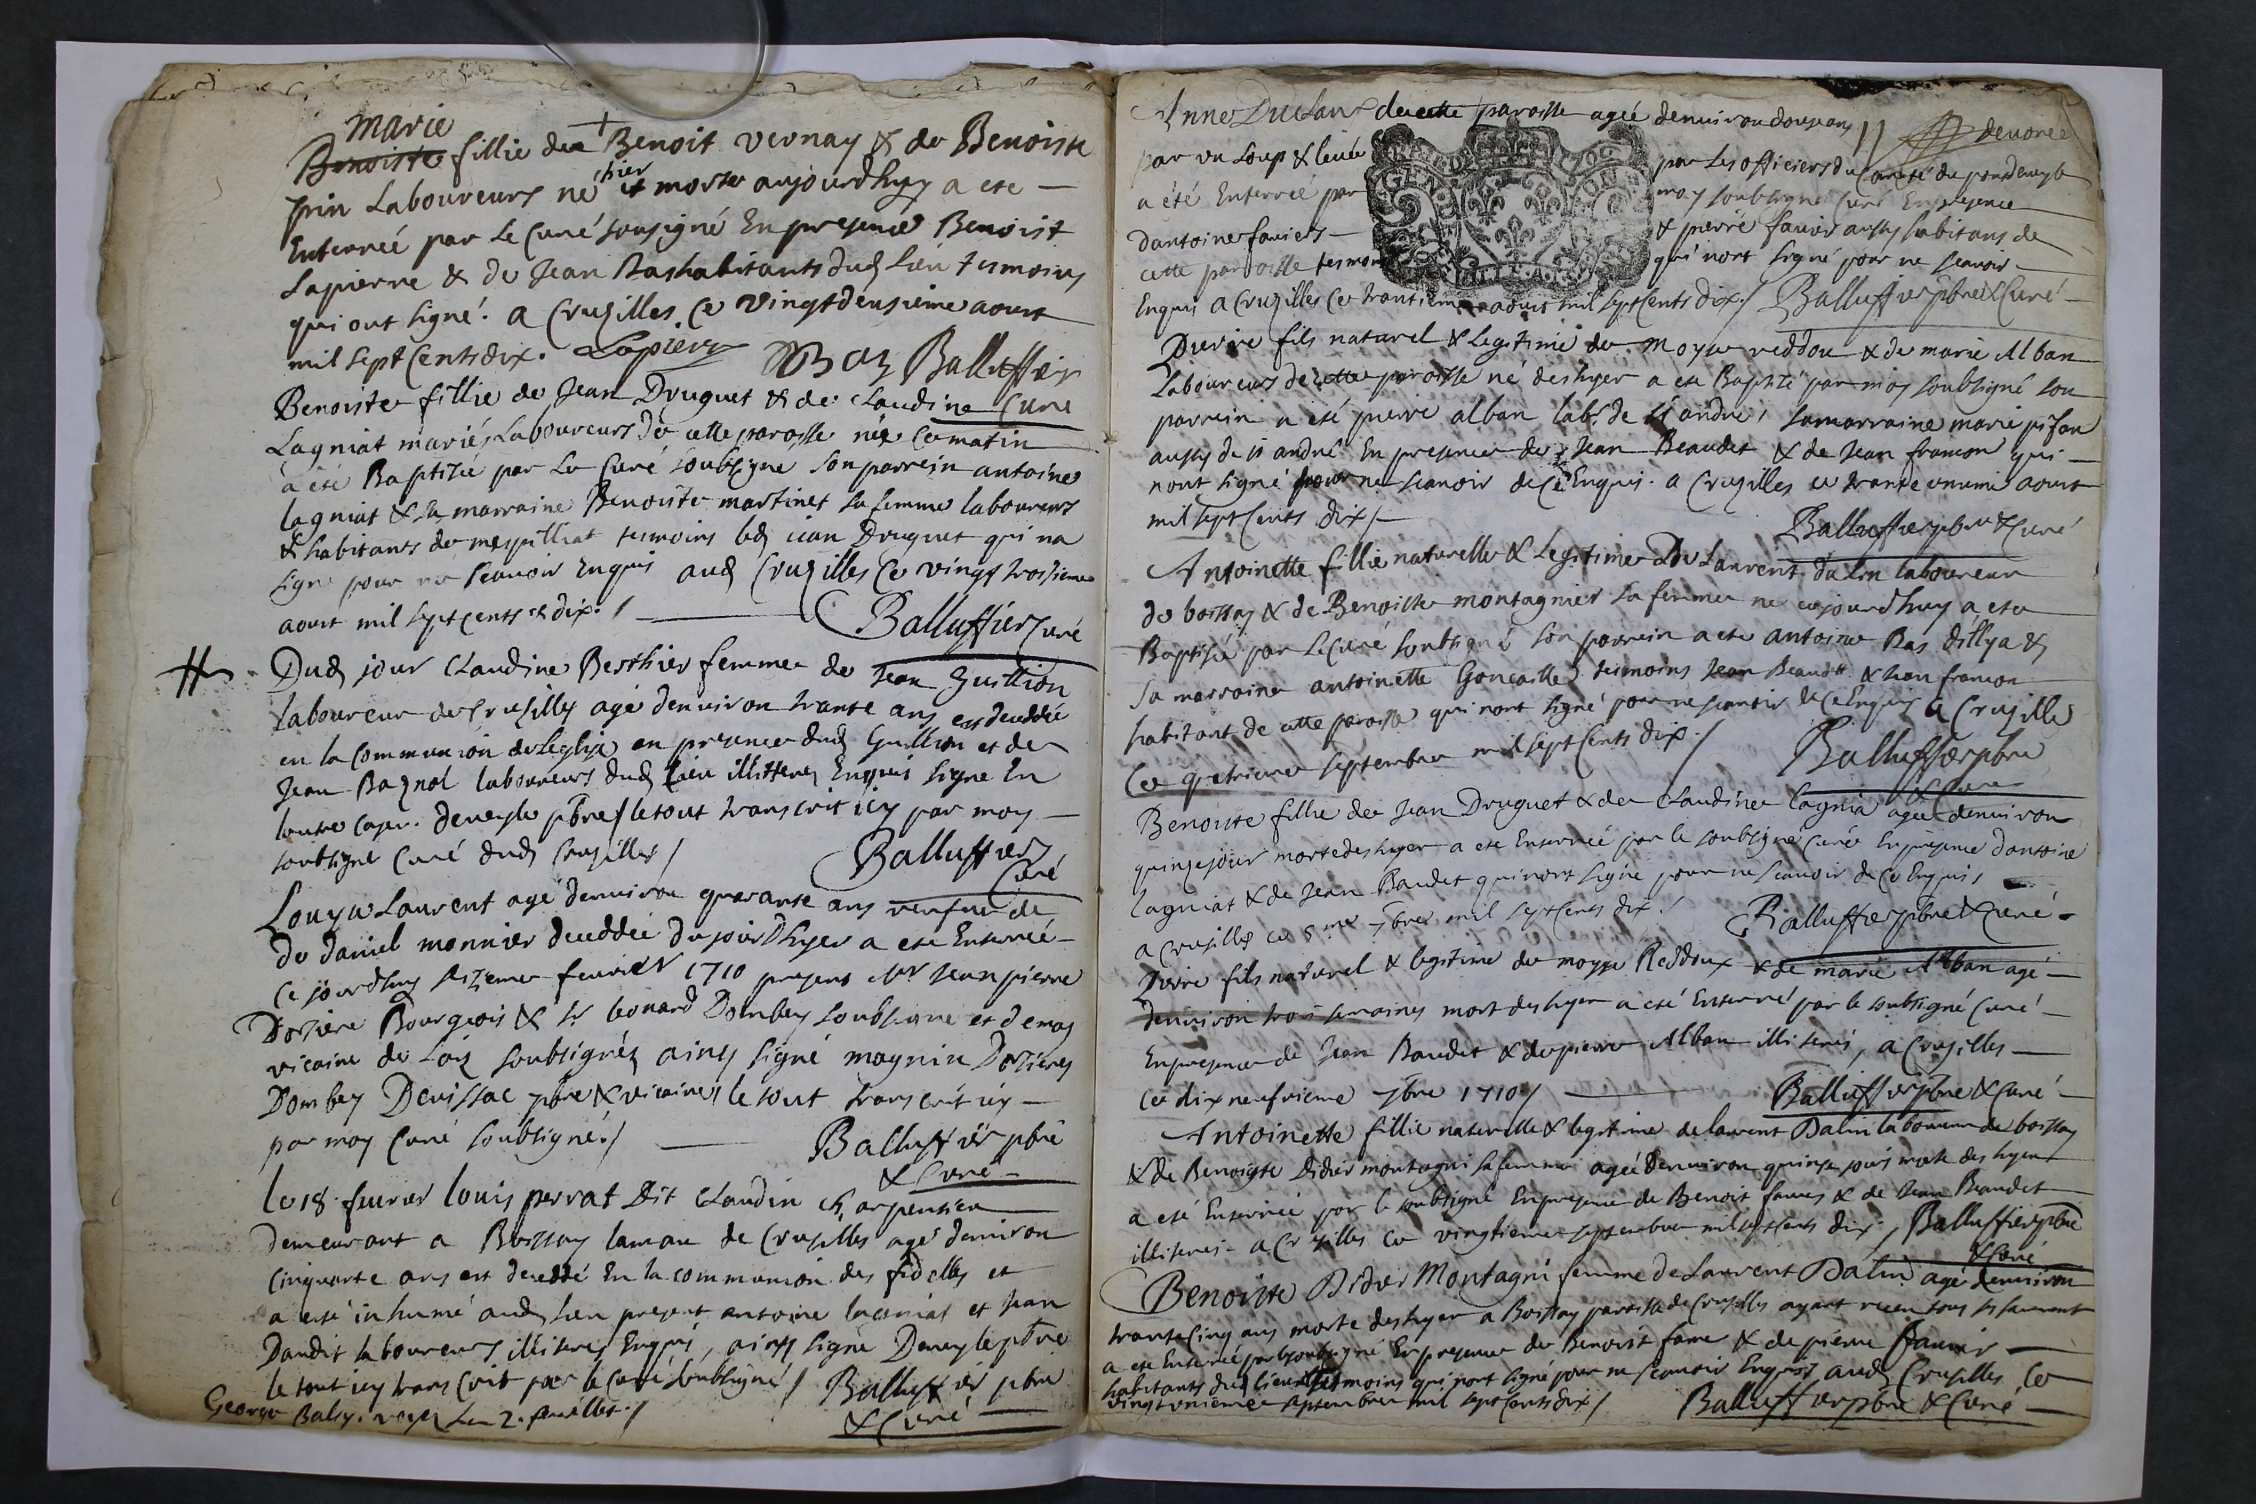 marie
Benoiste fillie de Benoit vernay & de Benoiste
prin Laboureurs né hier et morte aujourdhuy a ete
Enterreé par le Curé sousigné En presence Benoist
Lapierre & de Jean Bas habitants dud lieu tesmoins
qui ont signé. a Cruzilles Ce vingtdeusieme aoust
mil sept Cents dix. Lapierre Bas Balluffier
Curé
Benoiste fillie de Jean Druguet & de Claudine
Lagniat mariés Laboureurs de cette paroisse née Ce matin
a été Baptisée par Le Curé soubsigne son parrein antoine
lagniat & sa marraine Benoiste martinet sa femme laboureurs
& habitants de tesmoins led jean Druguet qui na
signe pour ne scavoir Enquis aud Cruzilles Ce vingt troisieme
aoust mil sept cents & dix. /
Balluffier Curé
Dud jour Claudine Berthier femme de Jean Guillion
Laboureur de Cruzilly agé denuiron trante ans est decedde
en la Communion de leglise en presence dud Guillion et de
Jean Bagnol laboureurs dud lieu illitteres Enquis signe En
deneyle pbre / le tout transcrit icy par moy
soubsigne curé dud Cruzilles /
Balluffier
Curé
Louyse Laurent agé denuiron quarante ans veufue de
de Daniel monnier deceddée du jour Dhyer a ete Enterreé
Ce jourdhuy seizieme feurier 1710 presens Mr Jean pierre
Doziere Bourgeois & sr leonard Dombey soubsigne et demoy
vicaire de Laiz soubsignéz ainsy signé magnin Dozieres
Dombey Devissac pbre & vicaires le tout transcrit icy
par moy Curé soubsigné. /
Balluffier pbre
& Curé
le 18 feurier louis perrat Dit Claudin Charpentier
demeurant a Boissay lamau de Cruzilles agé denuiron
cinquante ans est deceddé En la communion des fidelles et
a esté inhumé aud lieu present antoine lagniat et Jean
Daudit laboureurs illiteres Enquis, ainsy signe Deneyle pbre
le tout icy transcrit par le Curé soubsigné /
Balluffier pbre
& Curé
George Balry. voyez Les 2. feuillet. /
Anne Duclaux de cette paroisse agée denuiron douze ans // devoreé
par vn loup & leuée par Les officiers du Comté de pondeueyle
a été Enterreé par moy soubsigné Curé En presence
dantoine faniers & pierre fanier aussy habitans de
cette paroisse tesmoins qui nont signé pour ne scavoir
Enquis a Cruzilles Ce trantieme aoust mil sept Cents dix. / Balluffier pbre & Curé
Pierre fils naturel & Legitime de moyse reddou & de marie Alban
Laboureurs de cette paroisse né deshyer a ete Baptisé par moy soubsigné son
parrein a été pierre alban labr de st andré, samarraine marie pifan
aussy de st andré En presence de Jean Beaudet & de Jean francon qui
nont signé pour ne scavoir de ce Enquis. a Cruzilles ce trante unieme aoust
mil sept Cents dix /
Balluffier pbre & Curé
Antoinette fillie naturelle & Legitime De Laurent dalin laboureur
de boissay & de Benoiste montagnier sa femme ne aujourdhuy a ete
Baptisée par Le Curé soubsigné son parrein a ete antoine Bas dillya &
sa marraine antoinette Goncaille tesmoins Jean Beaudet & Jean francon
habitant de cette paroisse qui nont signé pour ne scavoir de ce Enquis a Cruzilles
Ce quatrieme septembre mil sept Cents dix. /
Balluffier pbre
& Curé
Benoiste fillie de Jean Druguet & de Claudine lagnia agée denuiron
quinze jour morte deshyer a ete Enterreé par le soubsigné Curé En presence dantoine
lagniat & de Jean Baudet qui nont signé pour ne scavoir de Ce Enquis,
a Cruzilles ce 8me 7bre mil sept Cents dix. /
Balluffier pbre & Curé
Pierre fils naturel & legitime de moyse Reddoux & de marie Alban agé
denuiron trois semaines mort deshyer a eté Enterré par le soubsigné Curé
En presence de Jean Baudet & de pierre Alban illiterés, a Cruzilles
Ce dix neufuieme 7bre 1710 /
Balluffier pbre & Curé
Antoinette fillie naturelle & legitime de laurent Dalin laboureur de boissay
& de Benoiste Didier montagni sa femme agée denuiron quinze jours morte des hyer
a eté Enterreé par le soubsigné En presence de Benoit fanies & de Jean Beaudet
illiterés. a Cruzilles ce vingtieme septembre mil sept Cents dix. / Balluffier pbre
& Curé
Benoiste Didier Montagni femme de Laurent Dalin agé denuiron
trante Cinq ans morte deshyer a Boissay paroisse de Cruzilles ayant receu tous ses sacrements
a ete Enterreé par le soubsigné En presence de Benoist fanie & de pierre fanier
habitants dud lieu tesmoins qui nont signé pour ne scavoir Enquis, aud Cruzilles Ce
vingt vnieme septembre mil sept Cents dix /
Balluffier pbre & Curé